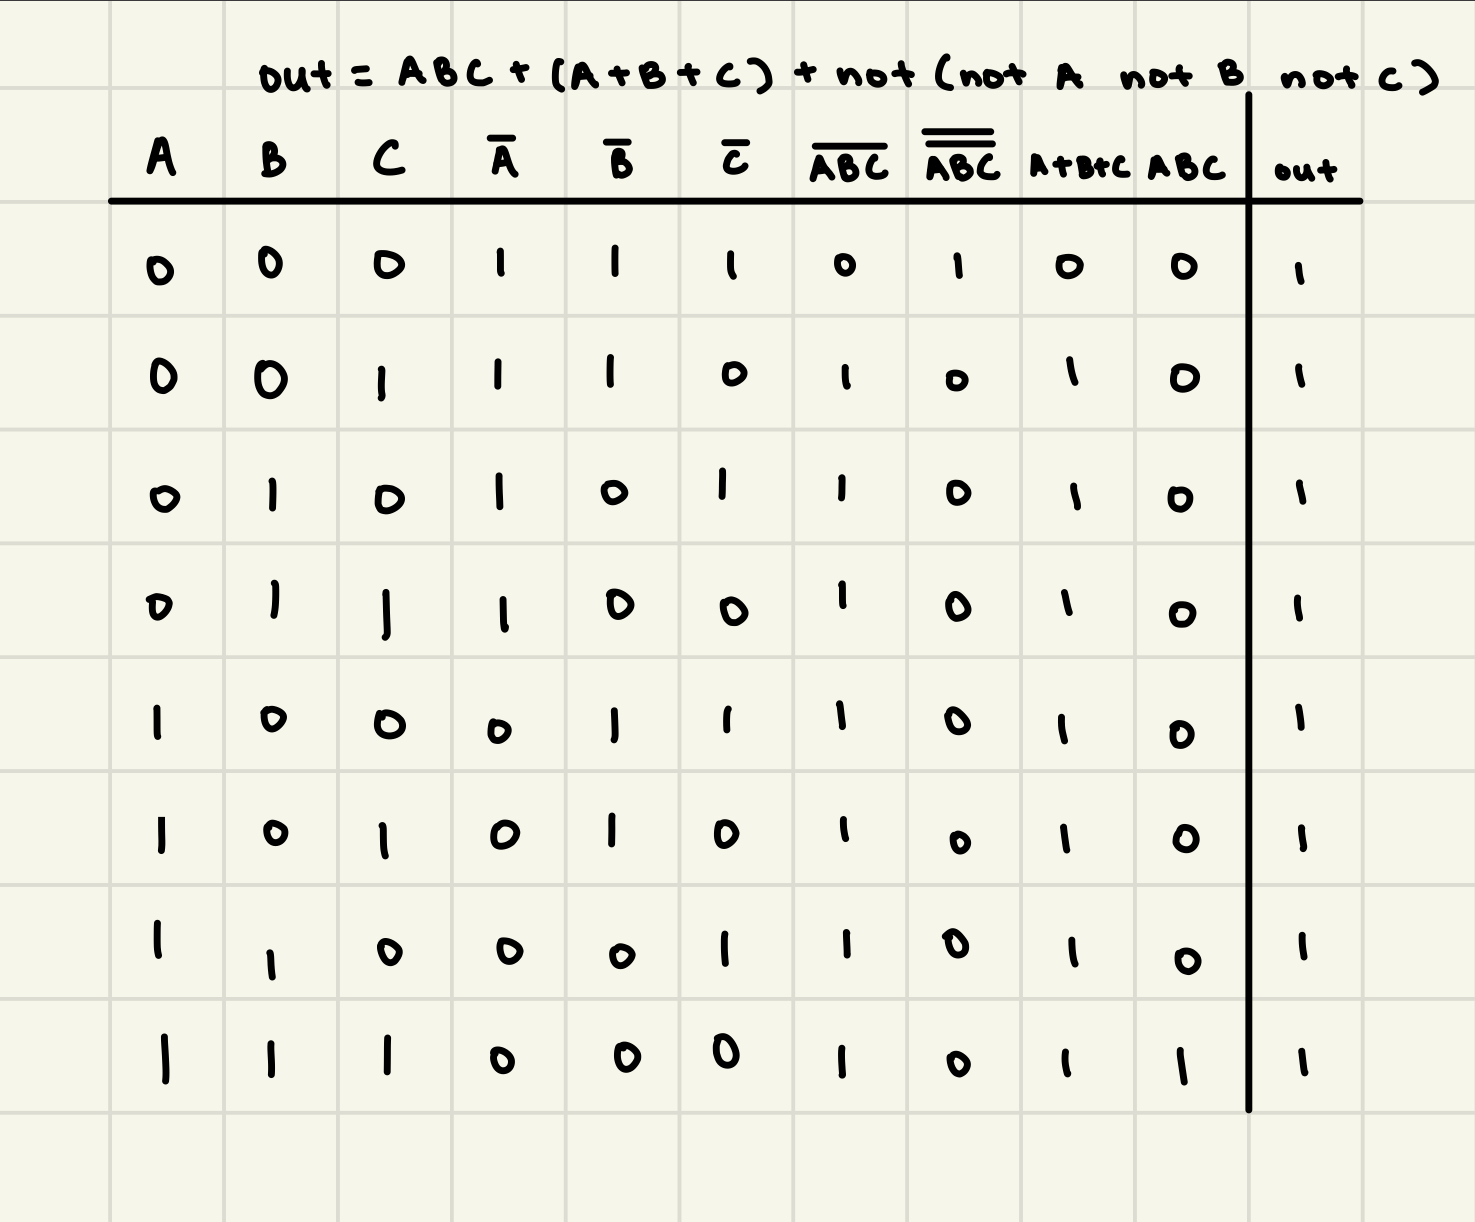 out = ABC + (A+B+C) + not (not A not B not C)
A B C A̅ B̅ C̅ A̅B̅C̅ A̿B̿C̿ A+B+C ABC out
0 0 0 1 1 1 0 1 0 0 1
0 0 1 1 1 0 1 0 1 0 1
0 1 0 1 0 1 1 0 1 0 1
0 1 1 1 0 0 1 0 1 0 1
1 0 0 0 1 1 1 0 1 0 1
1 0 1 0 1 0 1 0 1 0 1
1 1 0 0 0 1 1 0 1 0 1
1 1 1 0 0 0 1 0 1 1 1